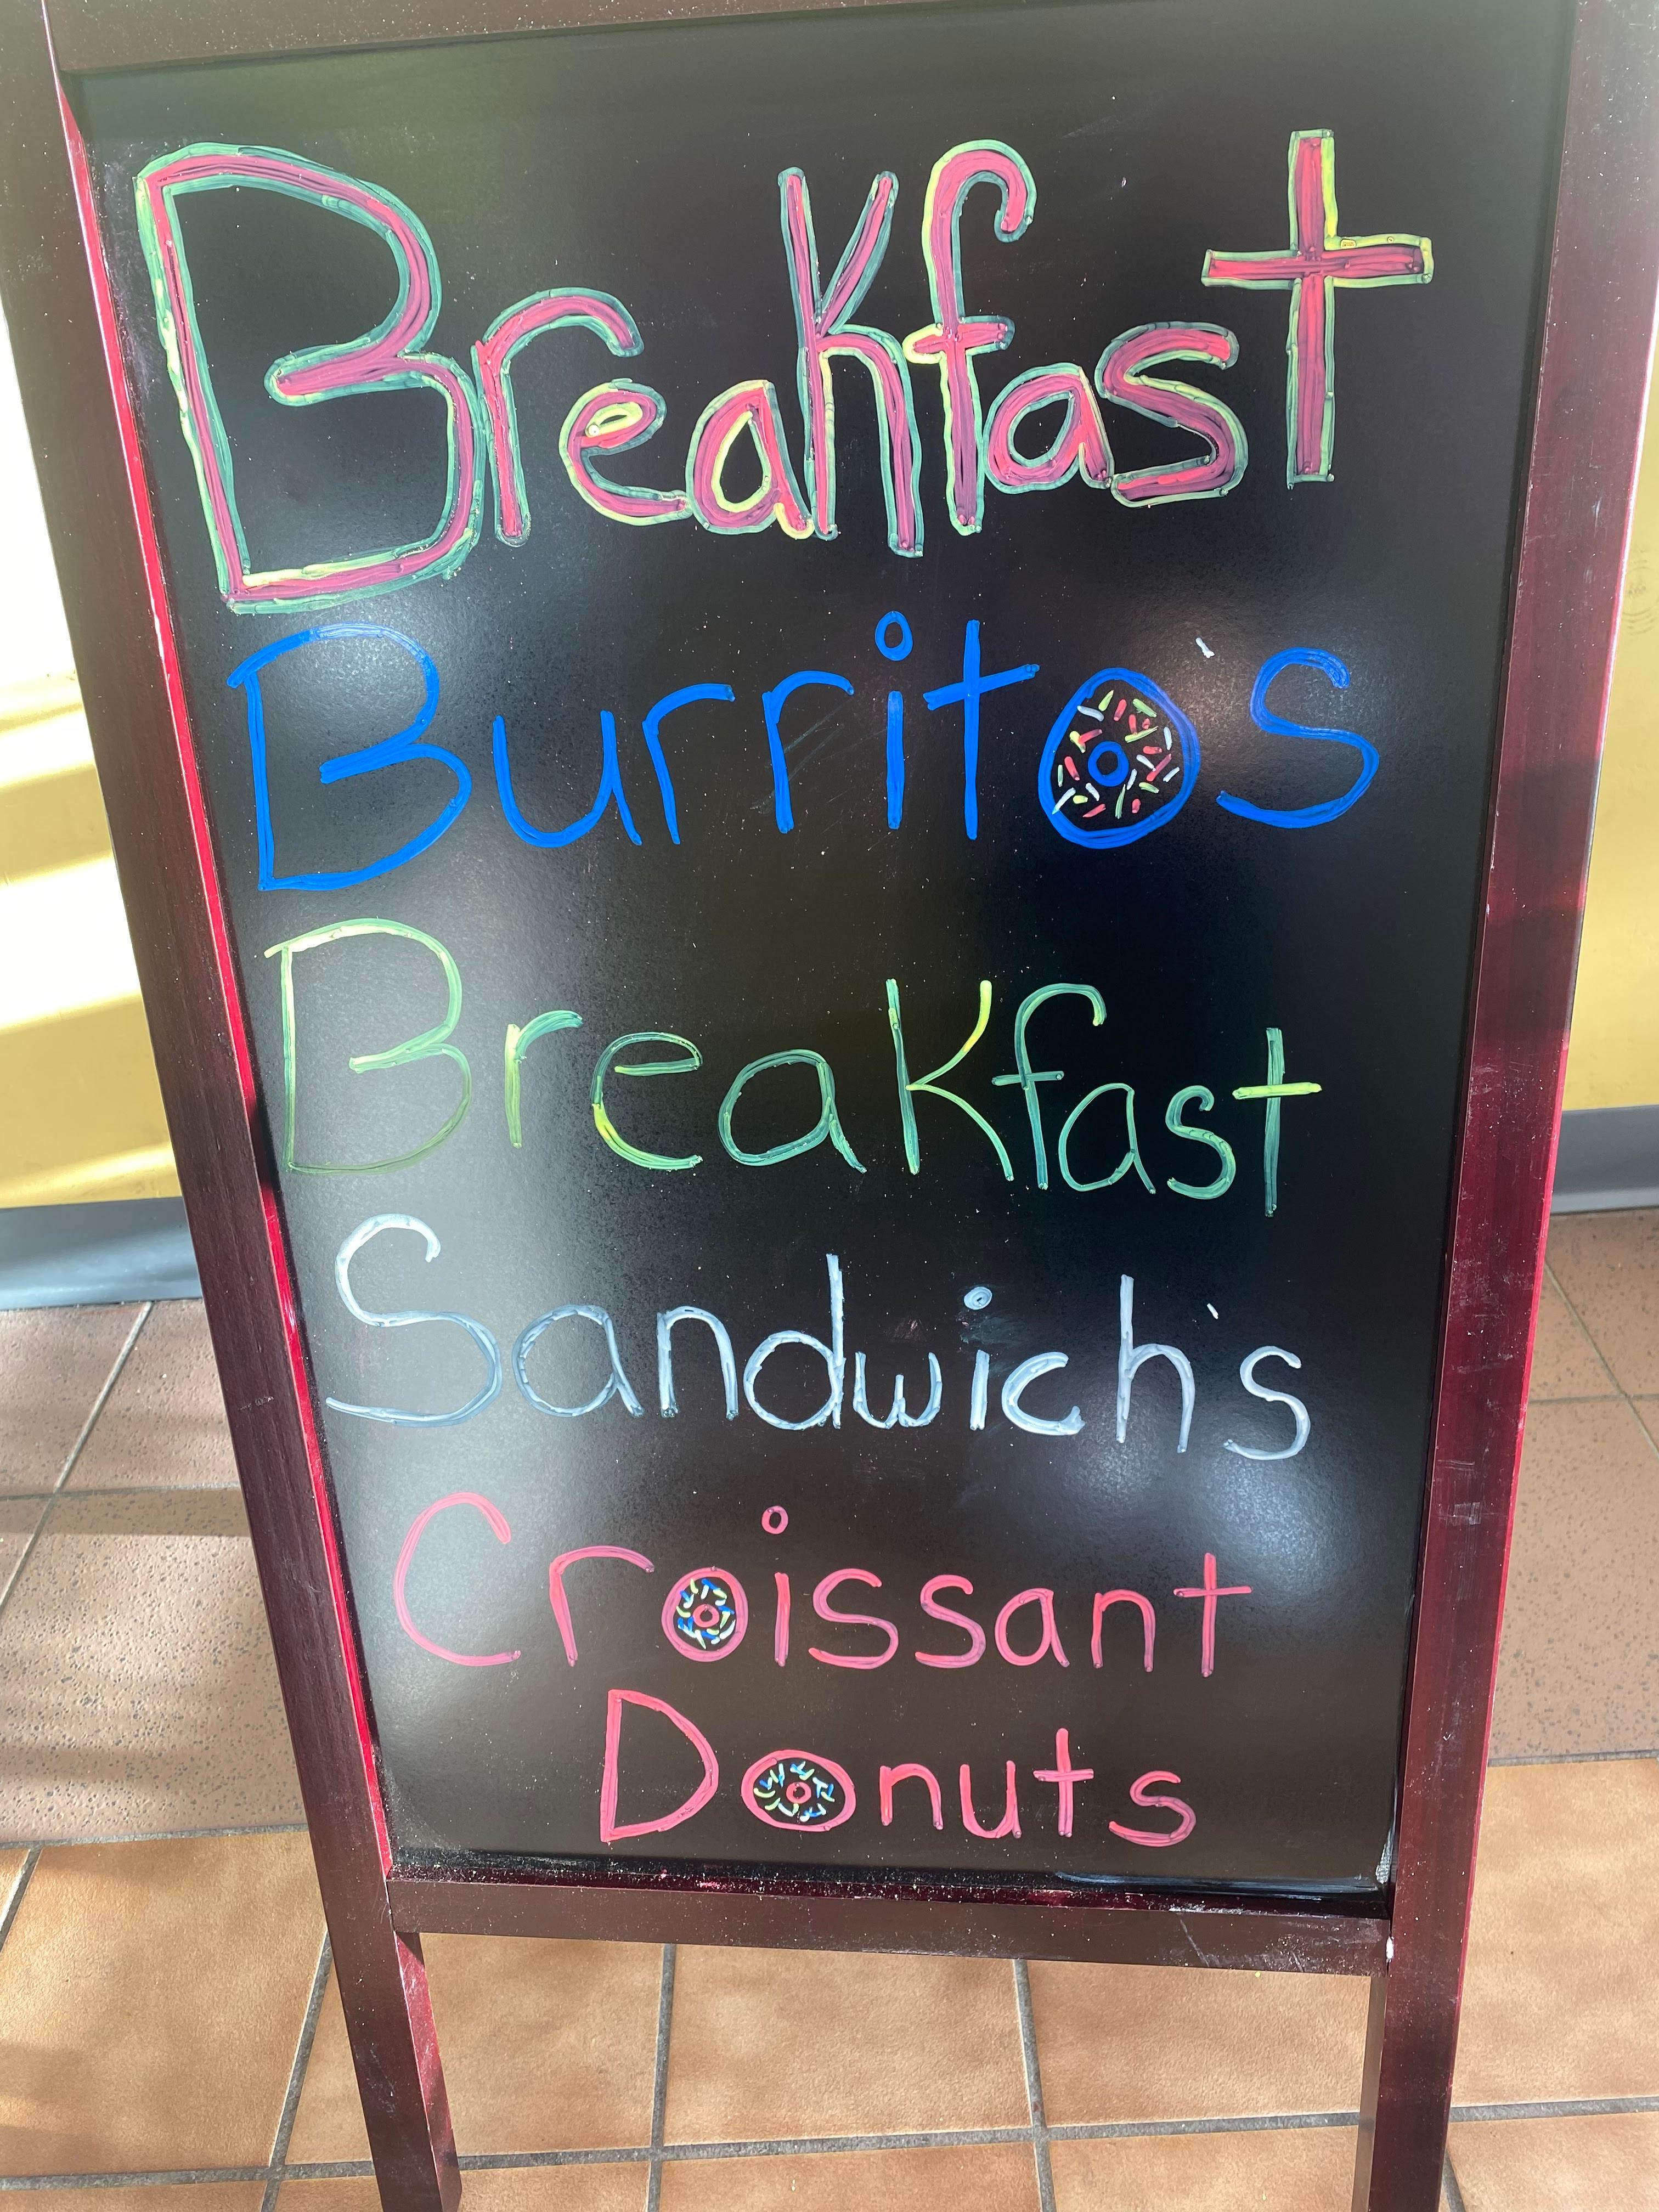 Breakfast
Burrito's
Breakfast
Sandwich's
Croissant
Donuts